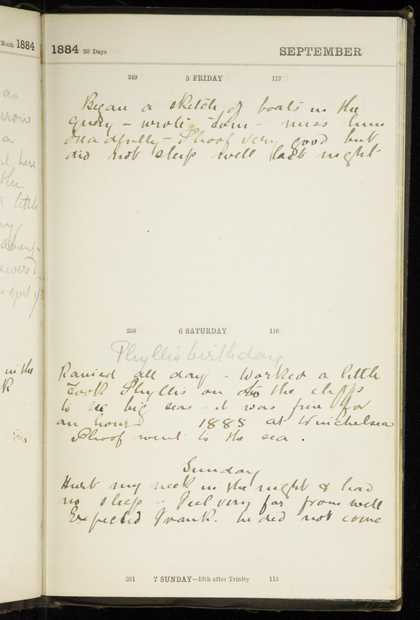 Month 1884
1884 30 Days SEPTEMBER
249 5 FRIDAY 117
Began a sketch of boats in the
quay - wrote Tom - miss him
dreadfully - Phoof very good but
did not sleep well last night
250 6 SATURDAY 116
Phyllis birthday
Rained all day - Worked a little
Took Phyllis on to the cliffs
to see big seas - it was fine for
an hour 1888 at Winchelsea
Phoof went to the sea .
Sunday
Hurt my neck in the night & had
no sleep - Feel very far from well
Expected Frank. he did not come
251 7 SUNDAY—13th after Trinity 115
in the